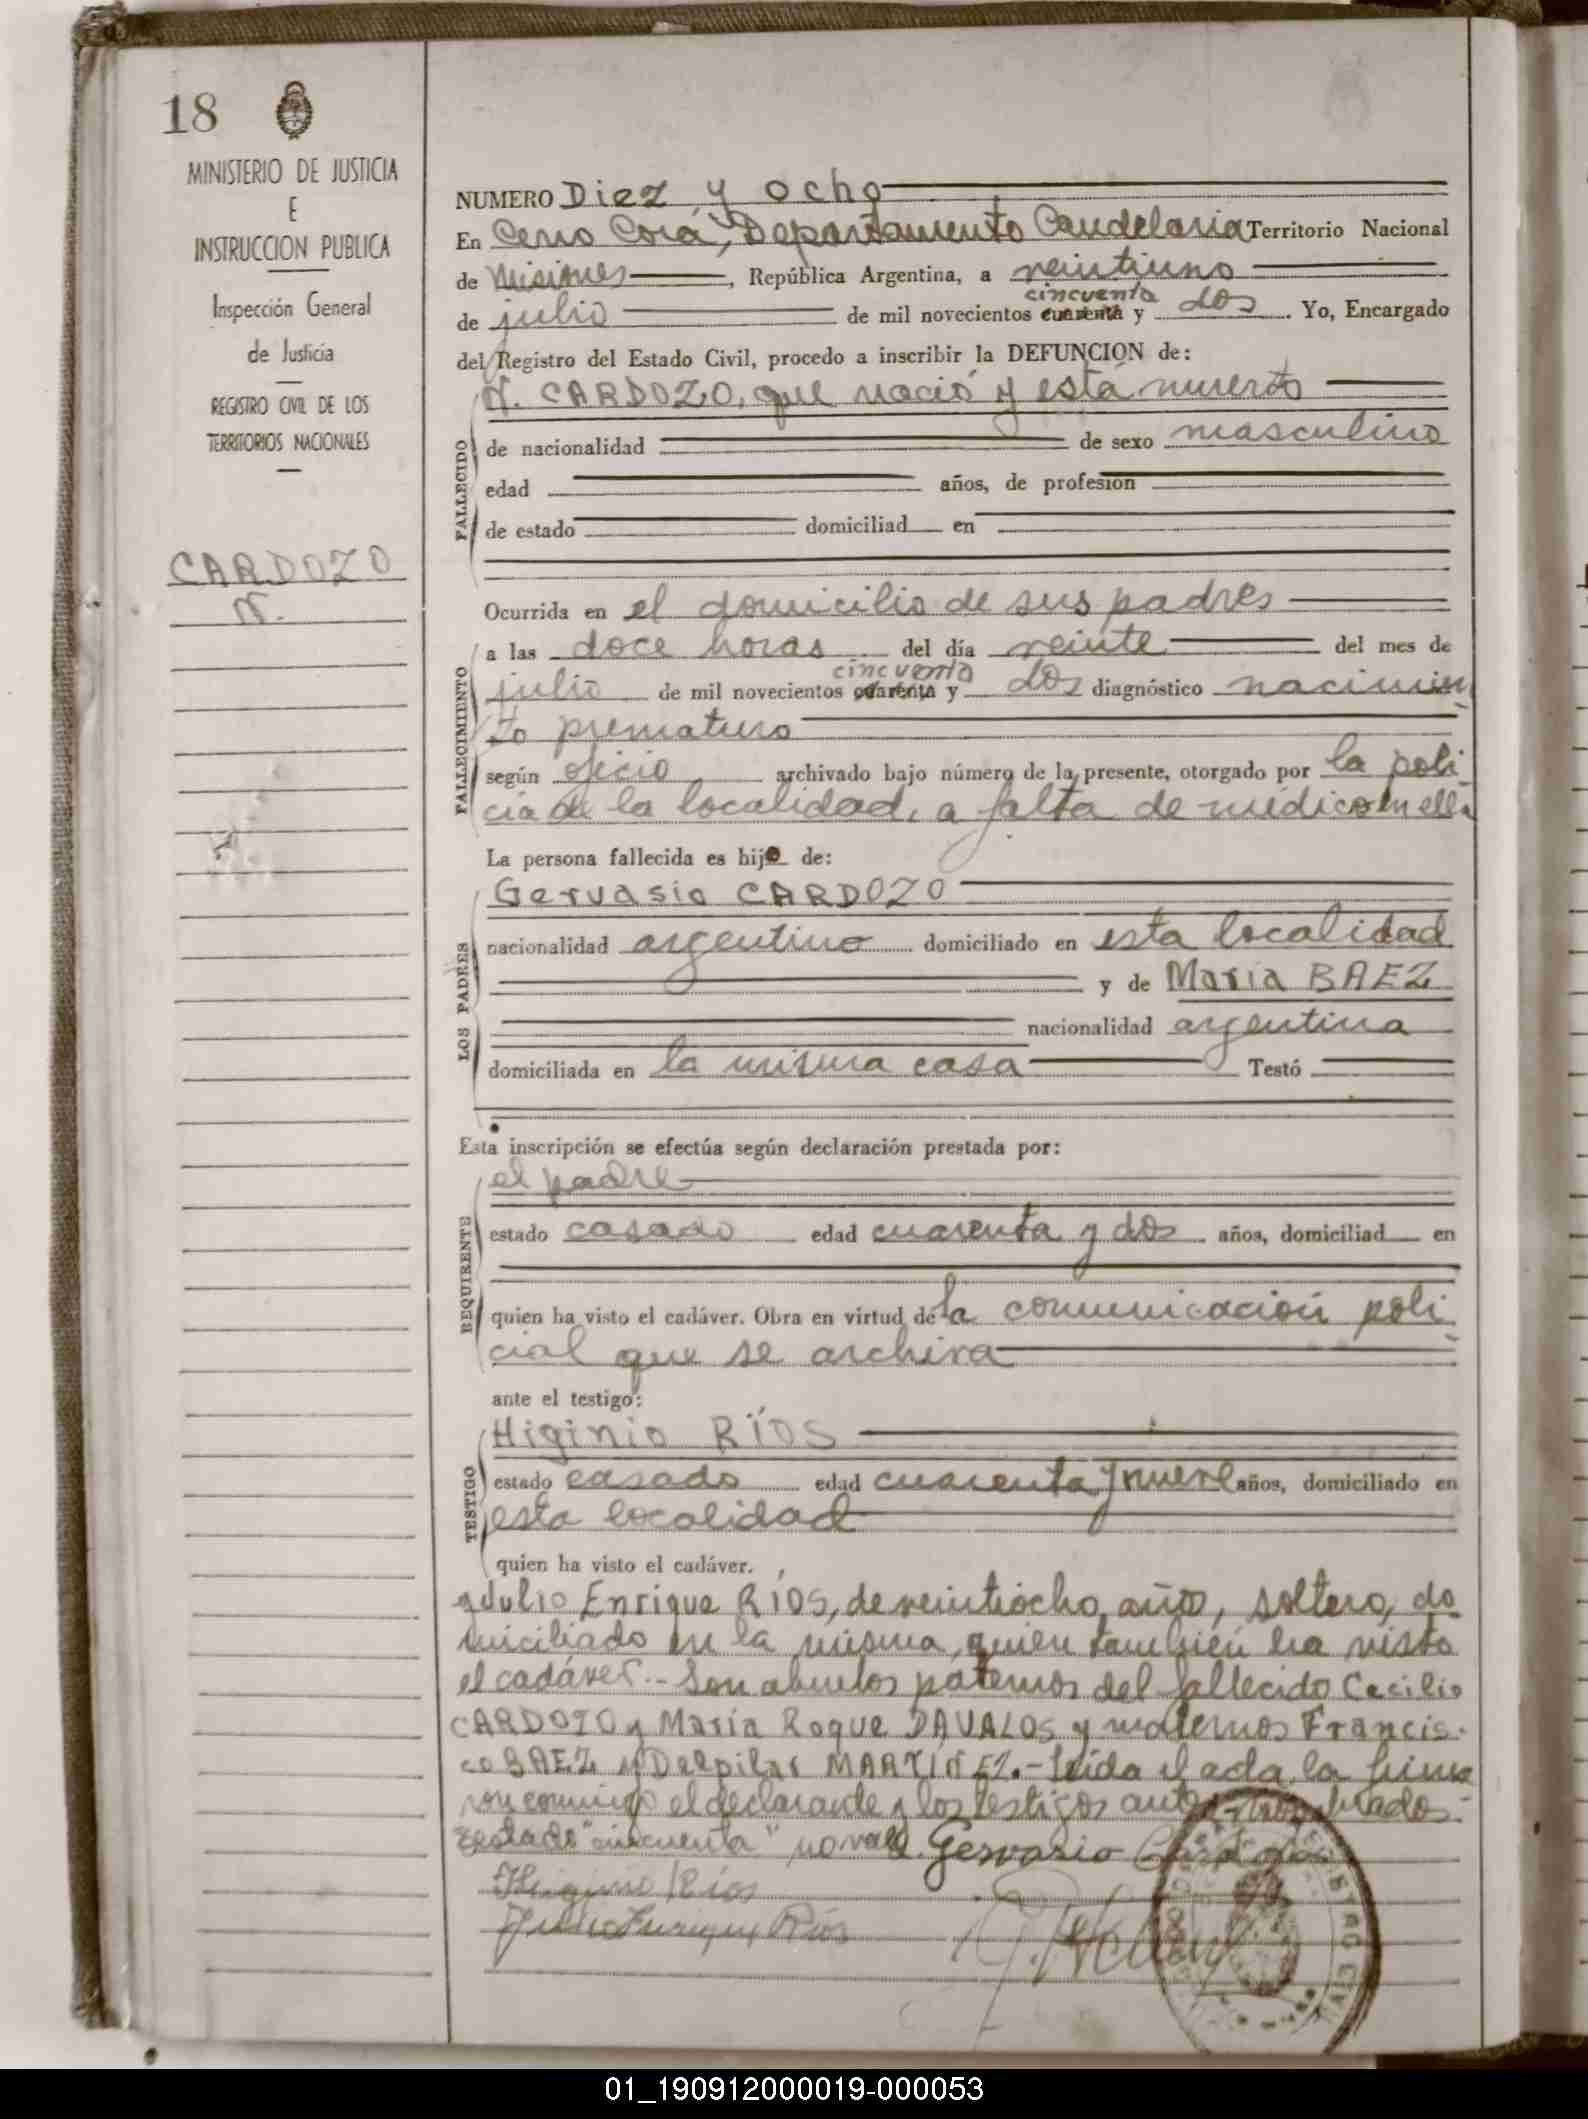 18
MINISTERIO DE JUSTICIA
E
INSTRUCCION PUBLICA
Inspección General
de Justicia
REGISTRO CIVIL DE LOS
TERRITORIOS NACIONALES
CARDOZO
N.
NUMERO Diez y ocho
En Cerro Corá, Departamento Candelaria Territorio Nacional
de Misiones, República Argentina, a veintiuno
cincuenta
de julio de mil novecientos cuarenta y dos. Yo, Encargado
del Registro del Estado Civil, procedo a inscribir la DEFUNCION de:
N. CARDOZO, que nació y está muerto
FALLECIDO
de nacionalidad de sexo masculino
edad años, de profesión
de estado domiciliad en
Ocurrida en el domicilio de sus padres
FALLECIMIENTO
a las doce horas del día veinte del mes de
cincuenta
julio de mil novecientos cuarenta y dos diagnóstico nacimien
to prematuro
según oficio archivado bajo número de la presente, otorgado por la poli
cia de la localidad, a falta de médico en ella
La persona fallecida es hijo de:
LOS PADRES
Gervasio CARDOZO
nacionalidad argentino domiciliado en esta localidad
y de María BAEZ
nacionalidad argentina
domiciliada en la misma casa Testó
Esta inscripción se efectúa según declaración prestada por:
REQUIRENTE
el padre
estado casado edad cuarenta y dos años, domiciliad en
quien ha visto el cadáver. Obra en virtud de la comunicación poli
cial que se archiva
ante el testigo:
TESTIGO
Higinio RÍOS
estado casado edad cuarenta y nueve años, domiciliado en
esta localidad
quien ha visto el cadáver.
y Julio Enrique RÍOS, de veintiocho años, soltero, do
miciliado en la misma, quien también ha visto
el cadáver.- Son abuelos paternos del fallecido Cecilio
CARDOZO y María Roque DAVALOS y maternos Francis-
co BAEZ y Delpilar MARTINEZ.- Leída el acta, la firma
ron conmigo el declarante y los testigos antes nombrados.-
Testado "cincuenta" no vale. Gervasio Cardozo
Higinio Ríos
Julio Enrique Ríos
01_190912000019-000053